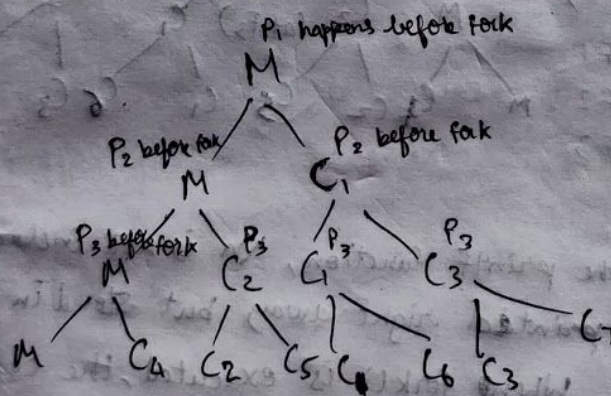 P1 happens before fork
M
P2 before fork P2 before fork
M C1
P3 before fork P3 P3 P3
M C2 C1 C3
M C4 C2 C5 C1 C6 C3 C7